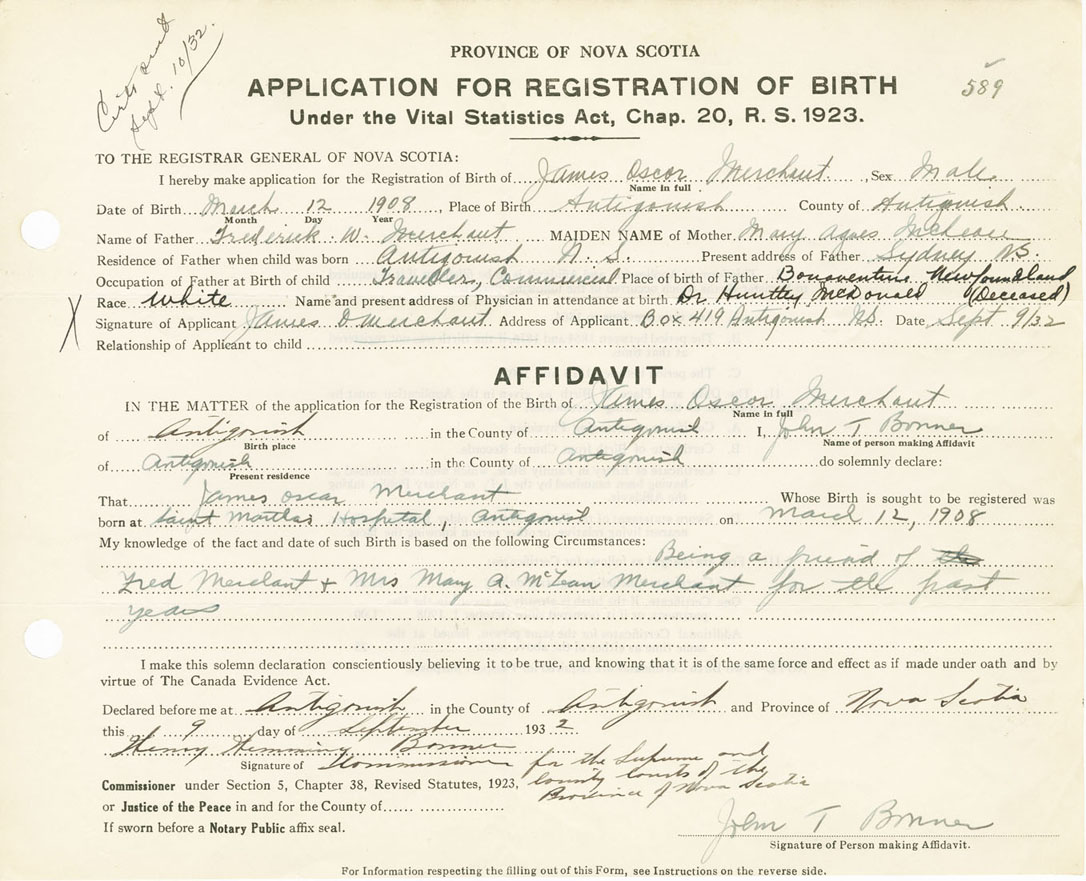 Certs sent
Sept. 10/32.
PROVINCE OF NOVA SCOTIA
APPLICATION FOR REGISTRATION OF BIRTH
589
Under the Vital Statistics Act, Chap. 20, R. S. 1923.
TO THE REGISTRAR GENERAL OF NOVA SCOTIA:
I hereby make application for the Registration of Birth of James Oscar Merchant, Sex Male
Name in full
Date of Birth March 12 1908, Place of Birth Antigonish County of Antigonish
Month Day Year
Name of Father Frederick W. Merchant MAIDEN NAME of Mother Mary Agnes McLean
Residence of Father when child was born Antigonish N. S. Present address of Father Sydney N.S.
Occupation of Father at Birth of child Traveller, Commercial Place of birth of Father Bonaventure Newfoundland
Race White Name and present address of Physician in attendance at birth Dr Huntley McDonald (Deceased)
X Signature of Applicant James O Merchant Address of Applicant Box 419 Antigonish N.S. Date Sept 9/32
Relationship of Applicant to child
AFFIDAVIT
IN THE MATTER of the application for the Registration of the Birth of James Oscar Merchant
Name in full
of Antigonish in the County of Antigonish I, John T Bonner
Birth place Name of person making Affidavit
of Antigonish in the County of Antigonish do solemnly declare:
Present residence
That James Oscar Merchant Whose Birth is sought to be registered was
born at Saint Marthas Hospital, Antigonish on March 12, 1908
My knowledge of the fact and date of such Birth is based on the following Circumstances:
Being a friend of the
Fred Merchant + Mrs Mary A. McLean Merchant for the past
years
I make this solemn declaration conscientiously believing it to be true, and knowing that it is of the same force and effect as if made under oath and by
virtue of The Canada Evidence Act.
Declared before me at Antigonish in the County of Antigonish and Province of Nova Scotia
this 9 day of September 1932
Henry Hemming Bonner
Signature of Commissioner for the Supreme and
Commissioner under Section 5, Chapter 38, Revised Statutes, 1923, County Courts of the
Province of Nova Scotia
or Justice of the Peace in and for the County of
If sworn before a Notary Public affix seal.
John T Bonner
Signature of Person making Affidavit.
For Information respecting the filling out of this Form, see Instructions on the reverse side.